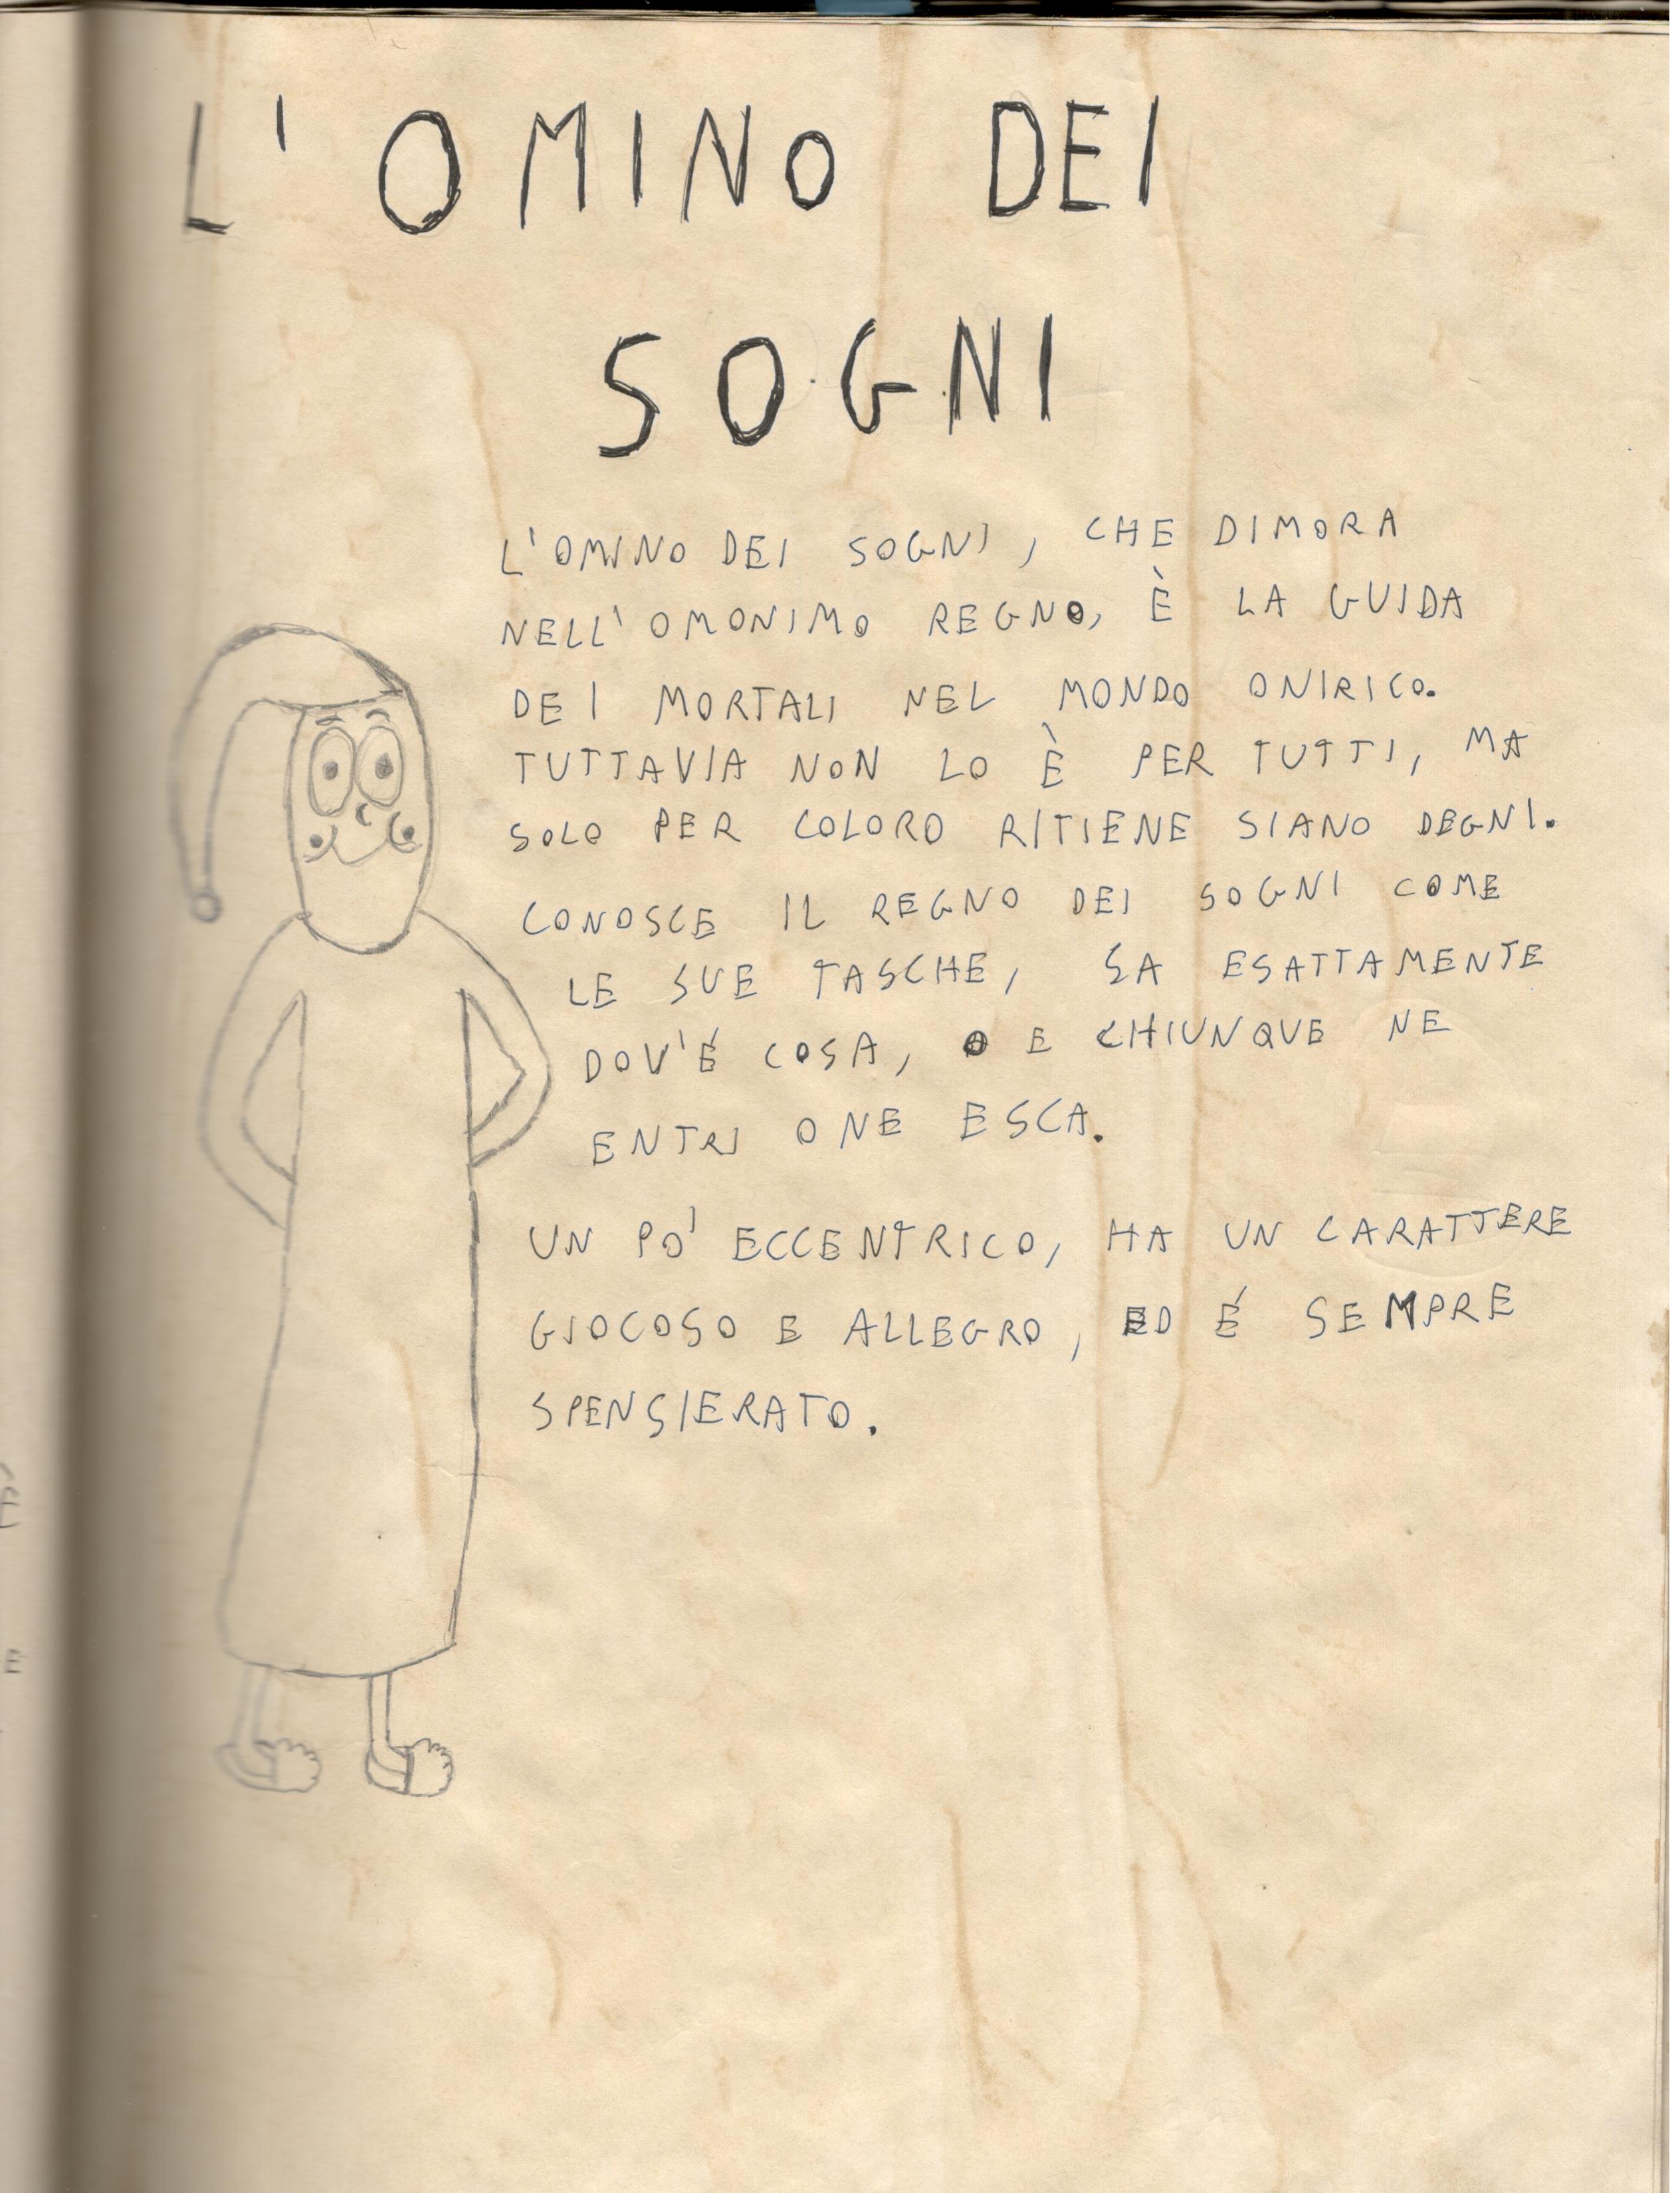 L'OMINO DEI
SOGNI
L'OMINO DEI SOGNI, CHE DIMORA
NELL'OMONIMO REGNO, È LA GUIDA
DEI MORTALI NEL MONDO ONIRICO.
TUTTAVIA NON LO È PER TUTTI, MA
SOLO PER COLORO RITIENE SIANO DEGNI.
CONOSCE IL REGNO DEI SOGNI COME
LE SUE TASCHE, SA ESATTAMENTE
DOV'É COSA, E CHIUNQUE NE
ENTRI O NE ESCA.
UN PO' ECCENTRICO, HA UN CARATTERE
GIOCOSO E ALLEGRO, ED É SEMPRE
SPENSIERATO.